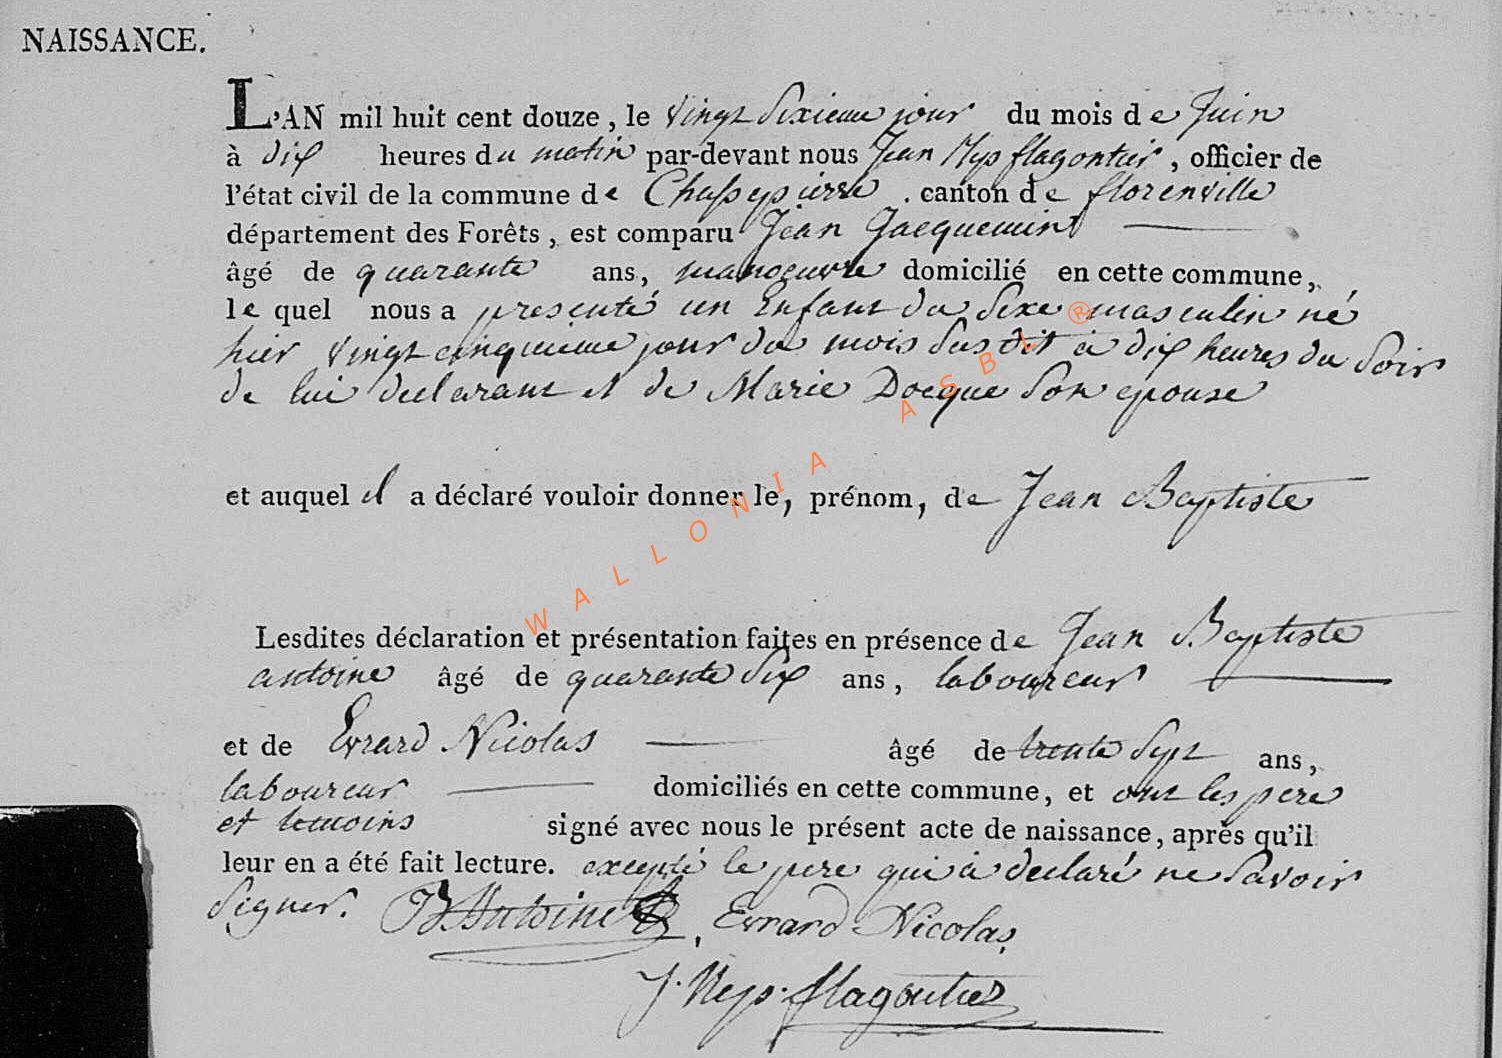 NAISSANCE.
L'AN mil huit cent douze, le vingt sixieme jour du mois de Juin
à dix heures du matin par-devant nous Jean Nys flagontier, officier de
l'état civil de la commune de Chassepierre. canton de florenville
département des Forêts, est comparu Jean Jacquemint
âgé de quarante ans, manoeuvre domicilié en cette commune,
le quel nous a presenté un Enfant du Sexe masculin né
hier vingt cinquieme jour du mois Sus dit à dix heures du Soir
de lui declarant et de Marie Docque Son epouse
et auquel il a déclaré vouloir donner le, prénom, de Jean Baptiste
Lesdites déclaration et présentation faites en présence de Jean Baptiste
antoine âgé de quarante Six ans, laboureur
et de Evrard Nicolas âgé de trente Sept ans,
laboureur domiciliés en cette commune, et ont les pere
et temoins signé avec nous le présent acte de naissance, après qu'il
leur en a été fait lecture. excepté le pere qui à declaré ne Savoir
Signer. JB Antoine, Evrard Nicolas,
J. Nys. flagontier
WALLONIA ASBL ®